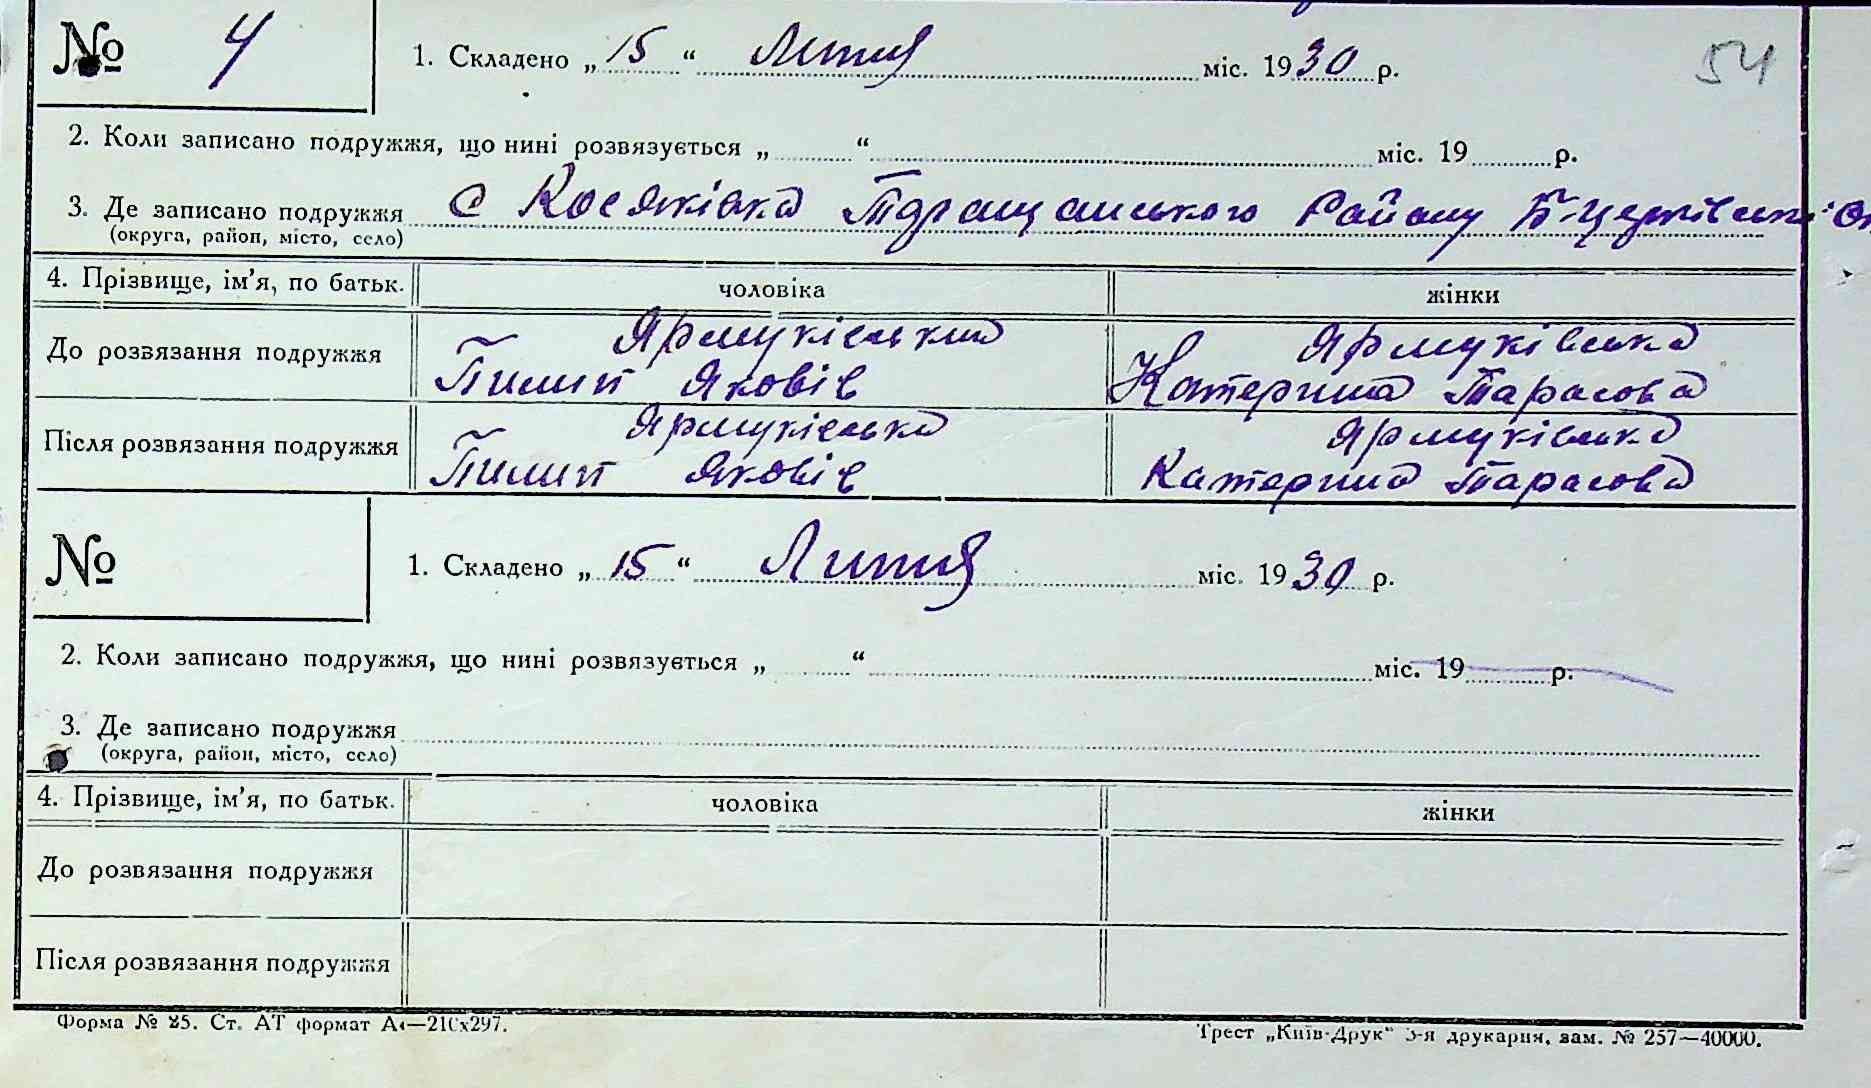 № 4
1. Складено „ 15 “ Липня міс. 1930 р.
54
2. Коли записано подружжя, що нині розвязується „ “ міс. 19 р.
3. Де записано подружжя с Косяківка Таращанського Району Б-Церківськ
(округа, район, місто, село)
4. Прізвище, ім’я, по батьк. чоловіка жінки
До розвязання подружжя
Ярмуківський
Пилип Яковів
Ярмуківська
Катерина Тарасова
Після розвязання подружжя
Пилип Яковів
Ярмуківська
Катерина Тарасова
№
1. Складено „ 15 “ Липня міс. 1930 р.
2. Коли записано подружжя, що нині розвязується „ “ міс. 19 р.
3. Де записано подружжя
(округа, район, місто, село)
4. Прізвище, ім’я, по батьк. чоловіка жінки
До розвязання подружжя
Після розвязання подружжя
Форма № 25. Ст. АТ формат А4—210х297.
Трест „Київ-Друк“ 3-я друкарня, зам. № 257—40000.